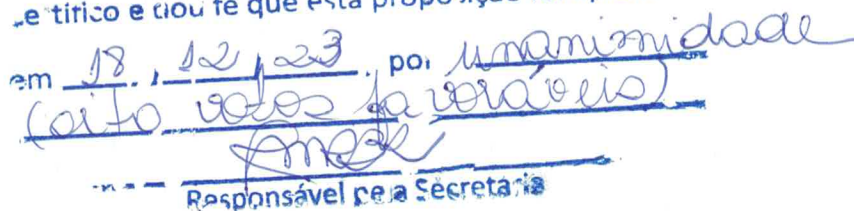 e dou fé que esta
em 18 / 12 / 23, por unanimidade
(oito votos favoráveis)
Responsável pela Secretaria